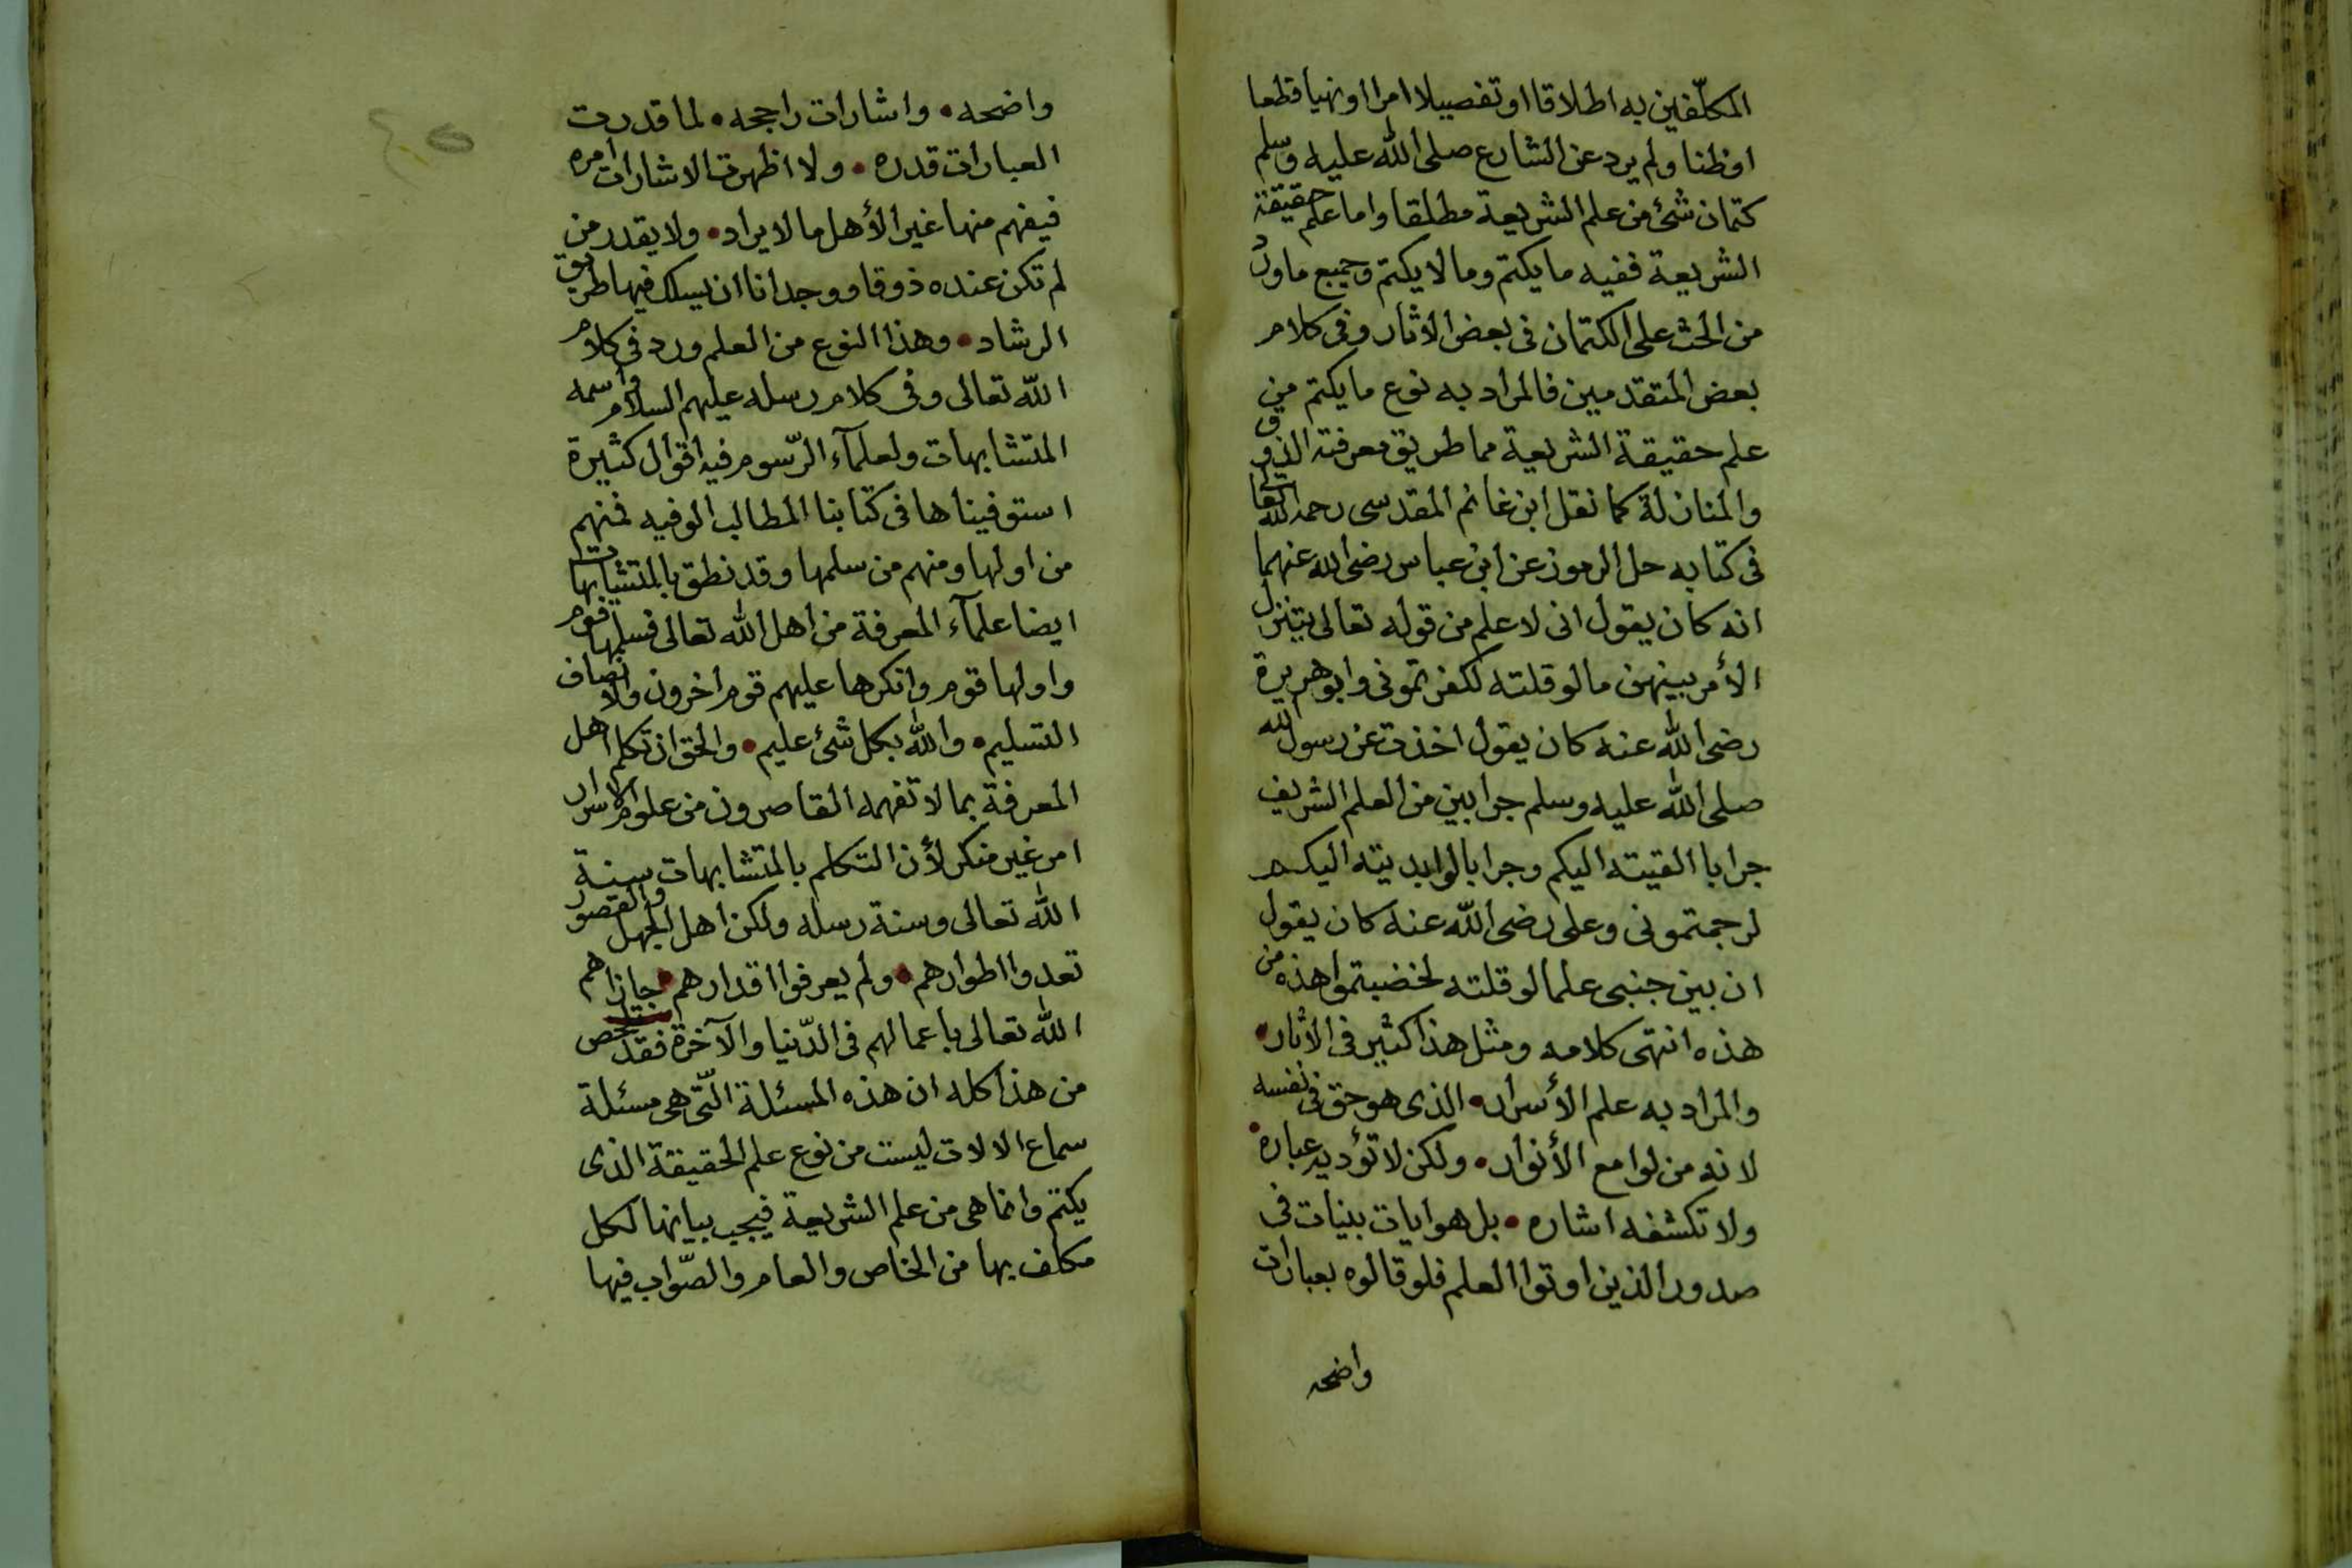 المكلّفين به اطلاقا او تفصيلا امرا او نهيا قطعا
او ظنا ولم يرد عن الشارع صلى الله عليه وسلم
كتمان شئ من علم الشريعة مطلقا واما علم حقيقة
الشريعة ففيه ما يكتم وما لا يكتم وجميع ماورد
من الحث على الكتمان فى بعض الاثار وفى كلام
بعض المتقدمين فالمراد به نوع ما يكتم من
علم حقيقة الشريعة مما طريق معرفته الذوق
والمنازلة كما نقل ابن غانم المقدسى رحمه الله تعا
فى كتابه حل الرموز عن ابن عباس رضى الله عنهما
انه كان يقول انى لا علم من قوله تعالى يتنزل
الأمر بينهن ما لو قلته لكفرتمونى وابو هريرة
رضى الله عنه كان يقول اخذت عن رسول الله
صلى الله عليه وسلم جرابين من العلم الشريف
جرابا القيته اليكم وجرابا لو ابديته اليكم
لرجمتمونى وعلى رضى الله عنه كان يقول
ان بين جنبى علما لو قلته لخضبتموا هذه من
هذه انتهى كلامه ومثل هذا كثير فى الأثار •
والمراد به علم الأسرار • الذى هو حق فى نفسه
لانه من لوامع الأنوار • ولكن لا تؤديه عباره •
ولا تكشفه اشاره • بل هو ايات بينات فى
صدور الذين اوتوا العلم فلو قالوه بعبارات
واضحه
واضحه • واشارات راجحه • لما قدرت
العبارات قدره • ولا اظهرت الاشارات امره
فيفهم منها غير الأهل ما لا يراد • ولا يقدر من
لم تكن عنده ذوقا ووجدانا ان يسلك فيها طريق
الرشاد • وهذا النوع من العلم ورد فى كلام
الله تعالى وفى كلام رسله عليهم السلام واسمه
المتشابهات ولعلمآء الرّسوم فيه اقوال كثيرة
استوفيناها فى كتابنا المطالب الوفيه فمنهم
من اولها ومنهم من سلمها وقد نطق بالمتشابهات
ايضا علمآء المعرفة من اهل الله تعالى فسلمها قوم
واولها قوم وانكرها عليهم قوم اخرون والانصاف
التسليم • والله بكل شئ عليم • والحق ان تكلم اهل
المعرفة بما لا تفهمه القاصرون من علوم الاسرار
امر غير منكر لأن التكلم بالمتشابهات سنة
الله تعالى وسنة رسله ولكن اهل الجهل والقصور
تعدوا اطوارهم • ولم يعرفوا اقدارهم • جازاهم
الله تعالى باعمالهم فى الدّنيا والآخرة فقد تلخص
من هذا كله ان هذه المسئلة الّتى هى مسئلة
سماع الالات ليست من نوع علم الحقيقة الذى
يكتم وانما هى من علم الشريعة فيجب بيانها لكل
مكلف بها من الخاص والعام والصّواب فيها